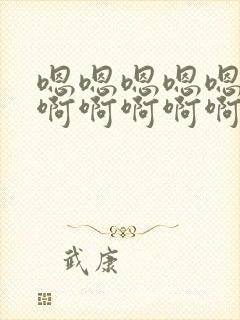 嗯嗯嗯嗯嗯
啊啊啊啊啊
武康